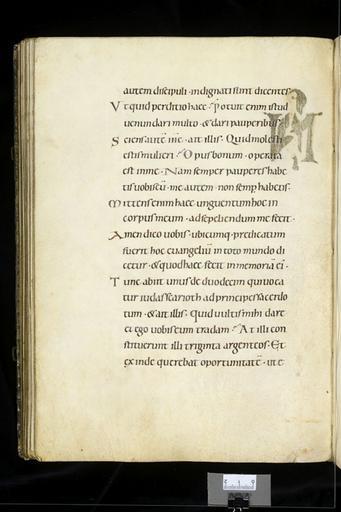 autem discipuli · indignati sunt dicentes
Vt quid perditio haec · Potuit enim istud
uenundari multo · & dari pauperibus
Sciens autē · ait illis · Quid molesti
estis mulieri · Opus bonum · operata
est in me · Nam semper pauperes habe
tis uobiscū · me autem · non semp habetis
Mittens enim haec unguentum hoc in
corpus meum · ad sepeliendum me fecit ·
Amen dico uobis · ubicumq · predicatum
fuerit hoc euangeliū in toto mundo di
cetur · & quod haec fecit in memoriā ei ·
Tunc abiit unus de duodecim qui uoca
tur iudas scarioth ad principes sacerdo
tum · & ait illis · Quid uultis mihi dare
et ego uobis eum tradam · At illi con
stituerunt illi triginta argenteos · Et
exinde querebat oportunitatē · ut e